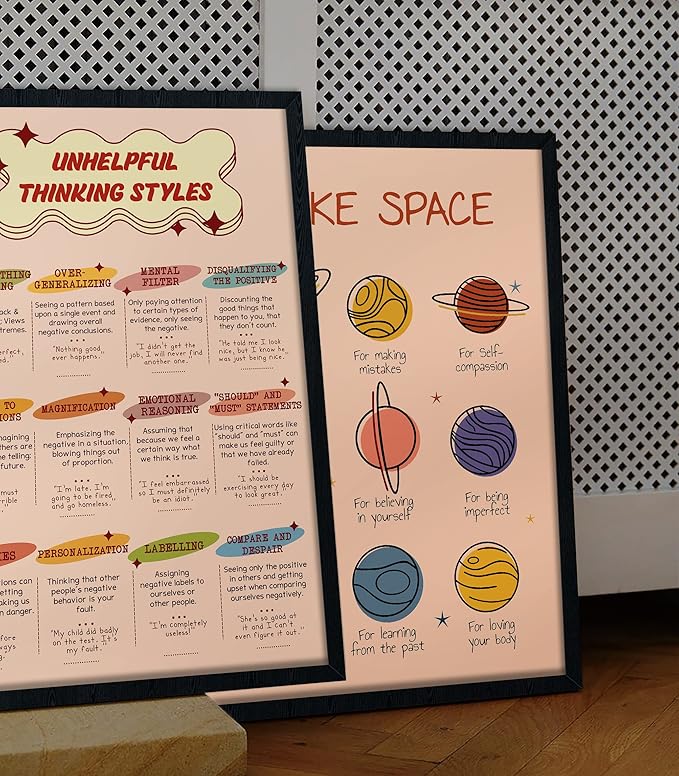 UNHELPFUL
THINKING STYLES
THING
NG
ack &
Views
tremes.
OVER-
GENERALIZING
Seeing a pattern based
upon a single event and
drawing overall
negative conclusions.
"Nothing good
ever happens."
MENTAL
FILTER
Only paying attention
to certain types of
evidence, only seeing
the negative.
"I didn't get the
job, I will never find
another one."
DISQUALIFYING
THE POSITIVE
Discounting the
good things that
happen to you, that
they don't count.
"He told me I look
nice, but I know he
was just being nice."
TO
IONS
magining
thers are
he telling
future.
must
rrible
MAGNIFICATION
Emphasizing the
negative in a situation,
blowing things out
of proportion.
"I'm late. I'm
going to be fired,
and go homeless."
EMOTIONAL
REASONING
Assuming that
because we feel a
certain way what
we think is true.
"I feel embarrassed
so I must definitely
be an idiot."
"SHOULD" AND
"MUST" STATEMENTS
Using critical words like
"should" and "must" can
make us feel guilty or
that we have already
failed.
"I should be
exercising every day
to look great."
IES
tions can
etting
aking us
n danger.
fore
ways
PERSONALIZATION
Thinking that other
people's negative
behavior is your
fault.
"My child did badly
on the test. It's
my fault."
LABELLING
Assigning
negative labels to
ourselves or
other people.
"I'm completely
useless!"
COMPARE AND
DESPAIR
Seeing only the positive
in others and getting
upset when comparing
ourselves negatively.
"She's so good at
it and I can't
even figure it out."
KE SPACE
For making
mistakes
For Self-
compassion
For believing
in yourself
For being
imperfect
For learning
from the past
For loving
your body